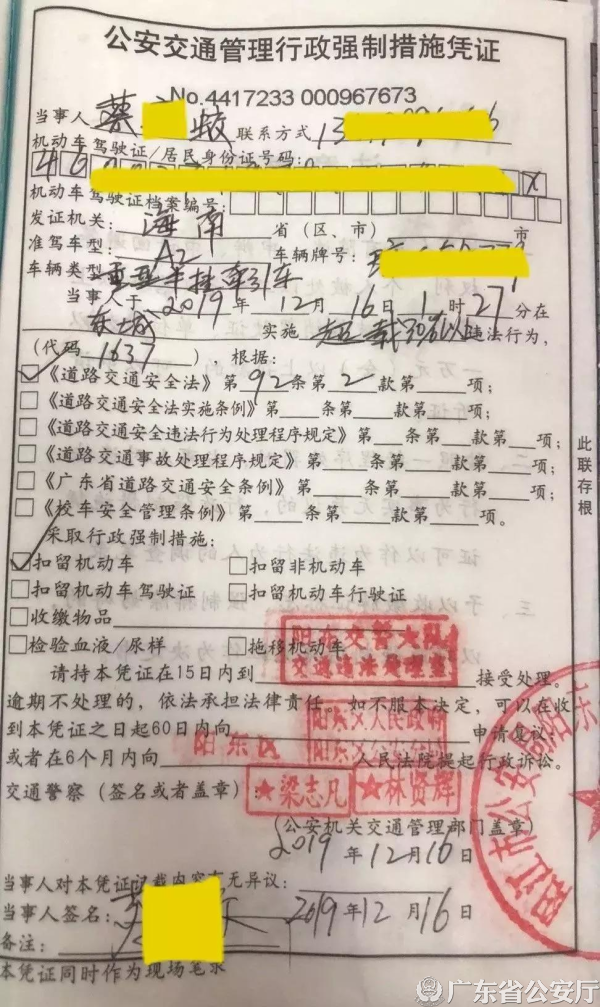 公安交通管理行政强制措施凭证
No.4417233 000967673
当事人 蔡 蛟 联系方式 13
机动车驾驶证/居民身份证号码:
46 X
机动车驾驶证档案编号:
发证机关: 海南 省(区、市) 市
准驾车型: A2 车辆牌号:
车辆类型 重型半挂牵引车
当事人于 2019 年 12 月 16 日 1 时 27 分在
东城 实施 超载30%以 违法行为,
(代码 1637 ),根据:
☑《道路交通安全法》第 92 条第 2 款第 项;
□《道路交通安全法实施条例》第 条第 款第 项;
□《道路交通安全违法行为处理程序规定》第 条第 款第 项;
□《道路交通事故处理程序规定》第 条第 款第 项;
□《广东省道路交通安全条例》第 条第 款第 项;
□《校车安全管理条例》第 条第 款第 项。
采取行政强制措施:
☑扣留机动车 □扣留非机动车
□扣留机动车驾驶证 □扣留机动车行驶证
□收缴物品
□检验血液/尿样 □拖移机动车
阳东交警大队
交通违法处理室
请持本凭证在15日内到 接受处理。
逾期不处理的,依法承担法律责任。如不服本决定,可以在收
到本凭证之日起60日内向 阳东区人民政府 申请复议;
或者在6个月内向 阳东区 人民法院提起行政诉讼。
交通警察(签名或者盖章): ★梁志凡 ★林贤辉
(公安机关交通管理部门盖章)
2019 年 12 月 16 日
当事人对本凭证记载内容有无异议:
当事人签名: 2019 年 12 月 16 日
备注:
本凭证同时作为现场笔录
此联存根
阳江市公安局阳东
广东省公安厅